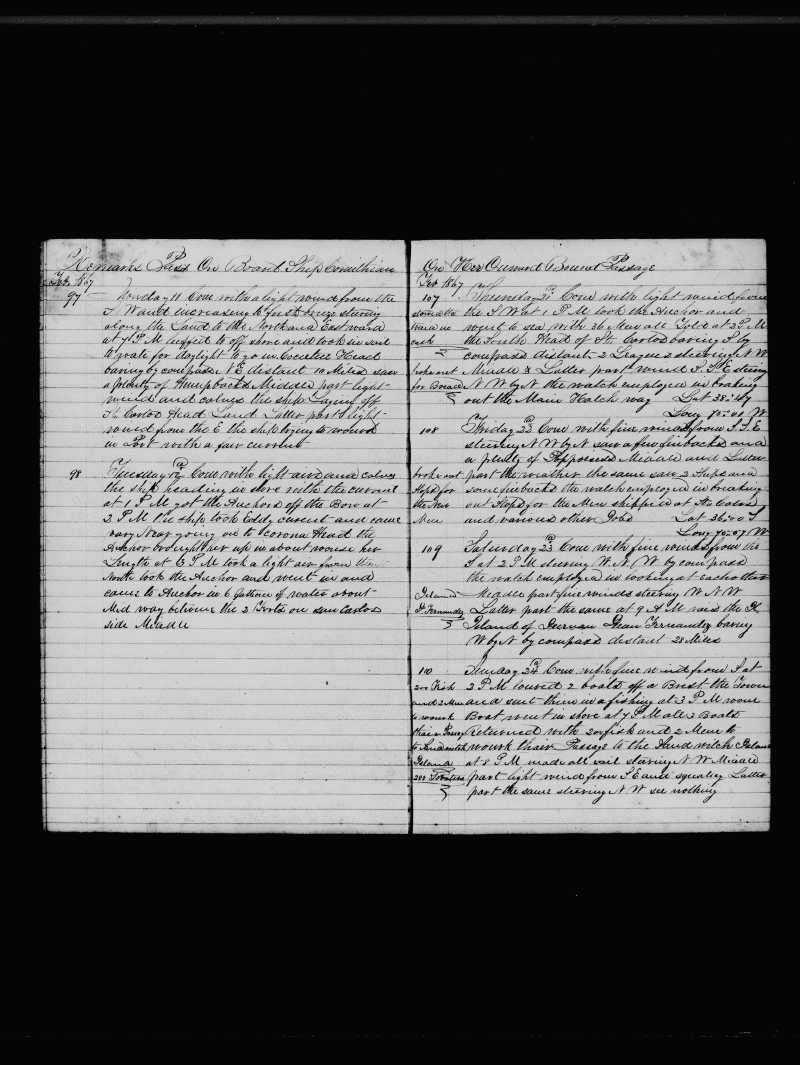 Remarks Past On Board Ship Corinthian
Feb 1867
97 Monday 11 Com with a light wind from the
S W and increasing to fresh breze stering
along the Land to the Northard Eastward
at 7 P M luffed to off shore and took in sail
to wate for daylight to go in Head
baring by compass N E distant 10 Miles saw
a plenty of Humpbacks Middle part light
wind and calmes the ship Laying off
St Carlos Head Land Latter part light
wind from the E the ship trying to wourk
in Port with a fair current
98 Tuesday 12 Com with light airs and calmes
the ship heading in shore with the current
at 1 P M got the Anchors off the Bow at
2 P M the ship took Eddy current and came
vary Near going on to Corona Head the
Anchor brought her up in about wonse her
Length at 6 P M took a light air from the
North took the Anchor and went in and
came to Anchor in 6 fathom of water about
Mid way between the 2 Forts on san Carlos
side Meadle
On Her Outward Bound Passage
Feb 1867
107 Thursday 21 Com with light wind from
the S W at 1 P M took the Anchor and
went to sea with 36 Men all Told at 2 P M
cask the South Head of St Carlos baring S by
compass distant 2 Leagues stering N W
broke out Meadle & Latter part wind S S E stering
for Bread N W by N the watch employed in braking
out the Main Hatch way Lat 38:47
Long 75:00 W
108 Friday 22 Com with fine winds from S S E
stering N W by N saw a few finbacks and
a plenty of Meadle and Latter
broke out part the weather the same saw 2 Ships and
slops for some finbacks the watch employed in breaking
the New out Slops for the Men shipped at St Carlos
Men and various other Jobs Lat 36:00 S
Long 75:57 W
109 Saturday 23 Com with fine winds from the
S at 2 P M stering W N W by compass
the watch employed in looking at each other
Island Meadle part fine winds stering W N W
J. Fernandz Latter part the same at 9 A M rais the
Island of Juan Fernandez baring
W by N by compass distant 28 Miles
110 Sunday 24 Com with fine wind from S at
200 Fish 2 P M lowred 2 boats off a Brest the Town
and 2 Men and sent them in a fishing at 3 P M wone
to wourk Boat went in shore at 7 P M all 3 Boats
thair Passg Returned with 200 fish and 2 Men to
to Sandwitch wourk thair Passage to the Sandwitch Island
Island at 8 P M made all sail stering N W Meadle
part light wind from S E and squaley Latter
part the same stering N W see nothing